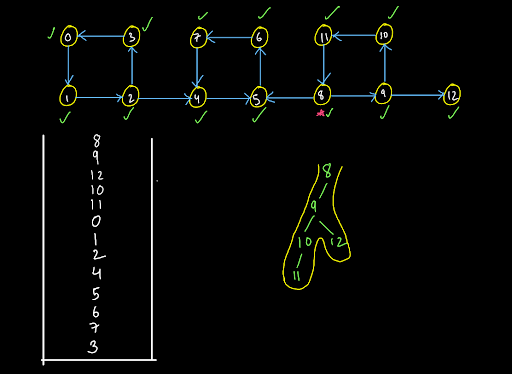 0 3 7 6 11 10
1 2 4 5 8 9 12
8
9
12
10
11
0
1
2
4
5
6
7
3
8
9
10 12
11